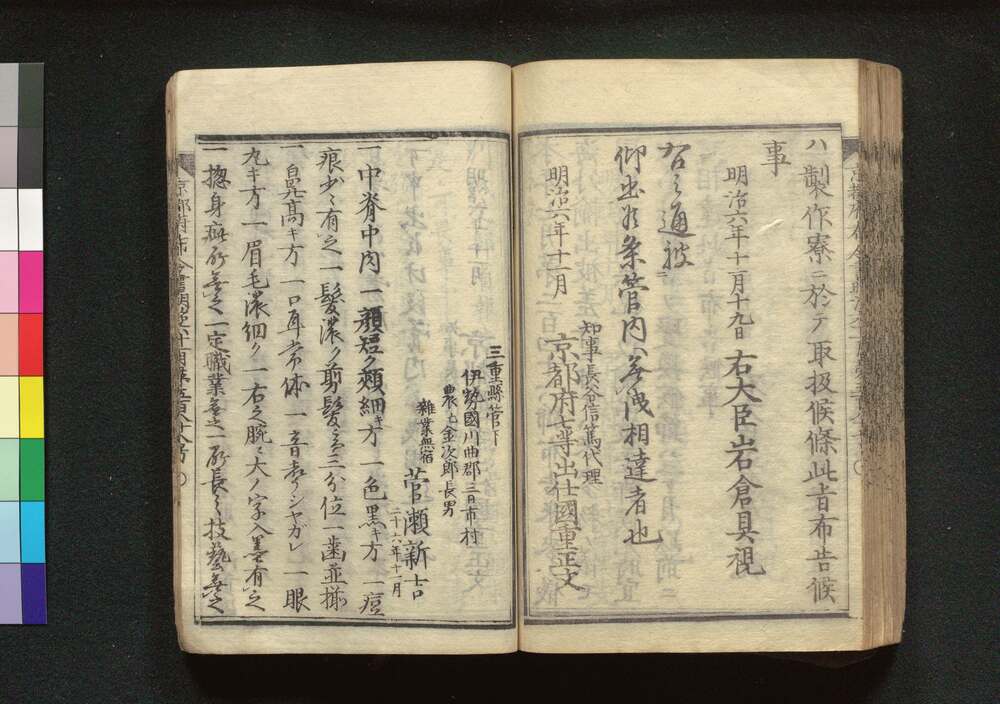 ハ製作寮ニ於テ取扱候條此旨布告候
事
明治六年十月十九日 右大臣岩倉具視
右之通被
仰出候条管内ヘ無洩相達者也
知事長谷信篤代理
明治六年十一月 京都府七等出仕國重正文
三重縣管下
伊勢國川曲郡三日市村
農亡金次郎長男
雜業無宿
菅瀬新吉
二十六年十一月
一中脊中肉一顔短ク頬細キ方一色黒キ方一痘
痕少々有之一髪濃ク剪髪立三分位一歯並揃
一鼻高キ方一口耳常体一音声シャガレ一眼
丸キ方一眉毛濃細ク一右之腕ニ大ノ字入墨有之
一惣身疵所無之一定職業無之一所長之技藝無之